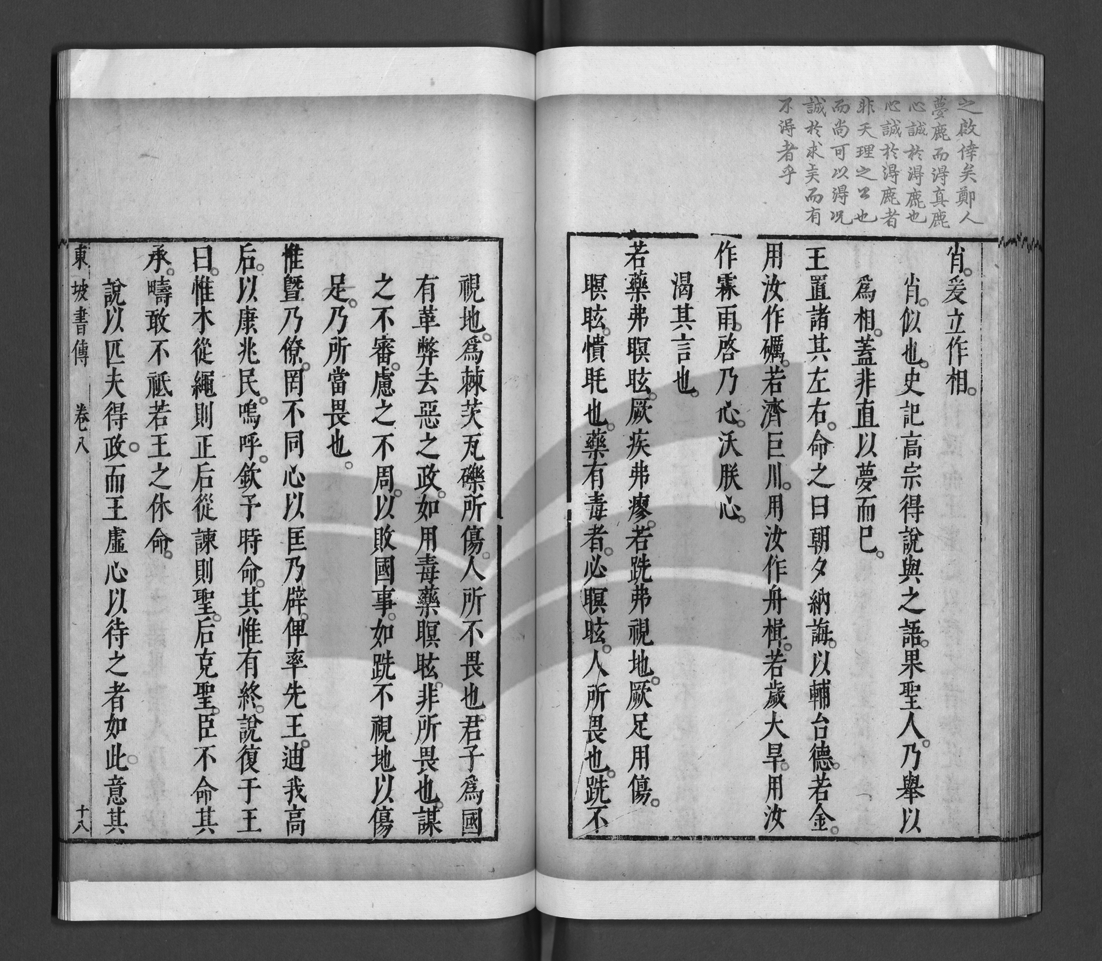 之啟倖矣鄭人
夢鹿而得真鹿
心誠於得鹿也
心誠於得鹿者
非天理之公也
而尚可以得况
誠於求矣而有
不得者乎
肖。爰立作相。
肖。似也。史記高宗得說與之語。果聖人。乃舉以
為相。蓋非直以夢而已。
王置諸其左右。命之曰朝夕納誨。以輔台德。若金。
用汝作礪。若濟巨川。用汝作舟楫。若歲大旱。用汝
作霖雨。啓乃心。沃朕心。
渴其言也。
若藥弗瞑眩。厥疾弗瘳。若跣弗視地。厥足用傷。
瞑眩。憒眊也。藥有毒者。必瞑眩。人所畏也。跣不
視地。為棘茨瓦礫所傷。人所不畏也。君子為國
有革弊去惡之政。如用毒藥瞑眩。非所畏也。謀
之不審。慮之不周。以敗國事。如跣不視地以傷
足。乃所當畏也。
惟曁乃僚。罔不同心以匡乃辟。俾率先王。迪我高
后。以康兆民。嗚呼。欽予時命。其惟有終。說復于王
曰。惟木從繩則正后從諫則聖。后克聖。臣不命其
承。疇敢不祗若王之休命。
說以匹夫得政。而王虛心以待之者如此。意其
東坡書傳 卷八 十八